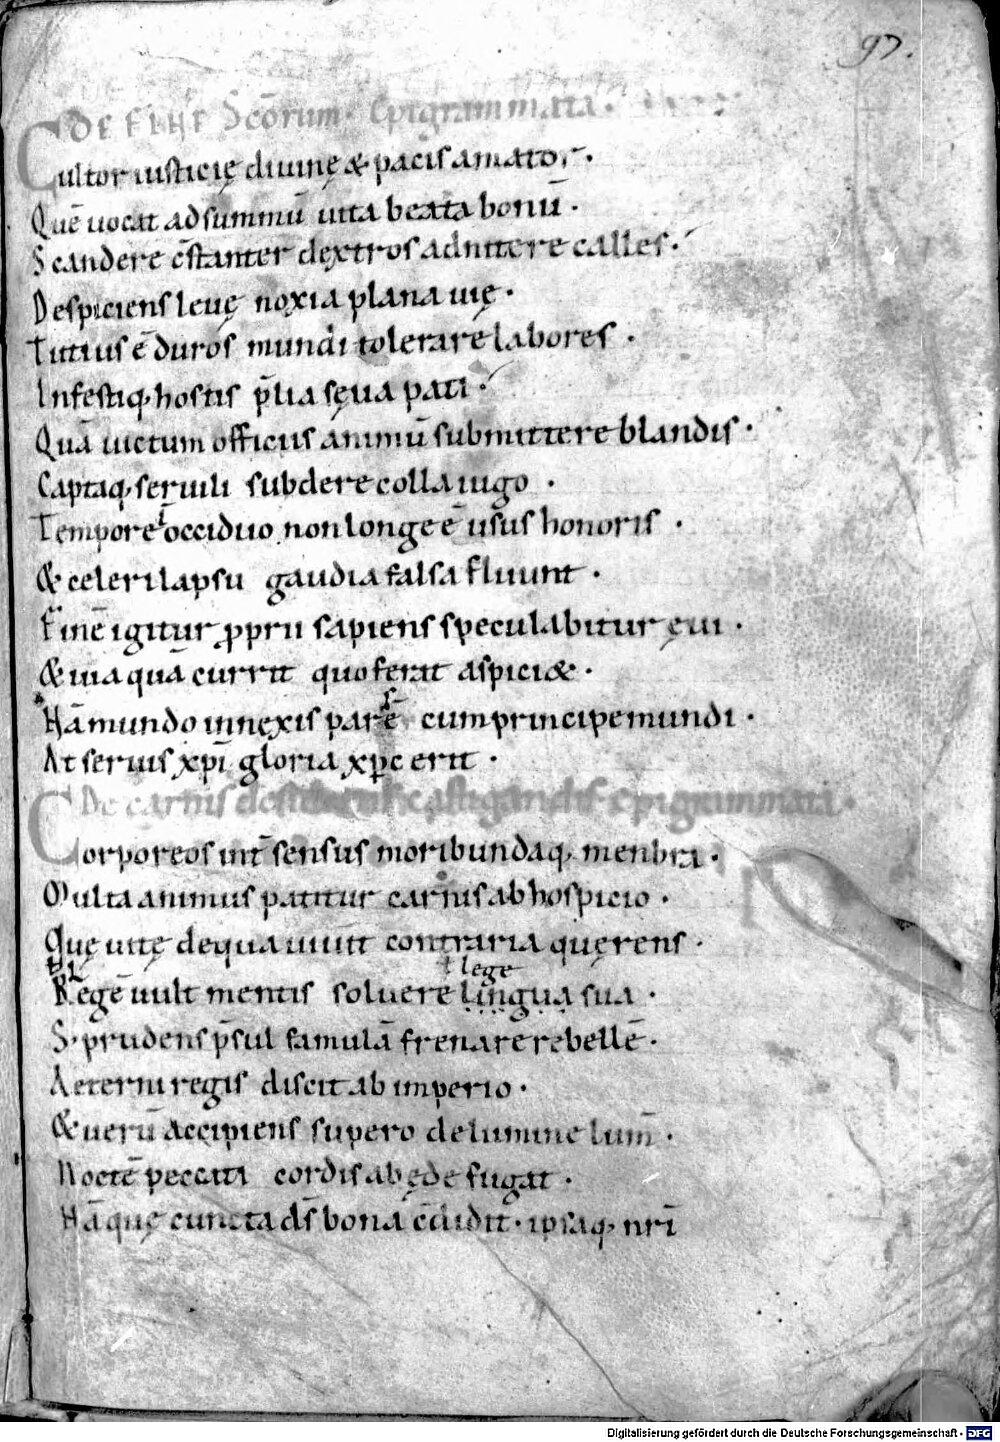 97.
DE FINE Scōrum. Epigrammata.
Cultor iusticię diuinę & pacis amator.
Quē uocat ad summū uita beata bonū.
Scandere c̄stanter dextros adnitere calles.
Despiciens leuę noxia plana uię.
Tutius ē duros mundi tolerare labores.
Infestiq, hostis p̄lia sęua pati.
Quā uictum officiis animū submittere blandis.
Captaq, seruili subdere colla iugo.
Tempore occiduo non longe ē usus honoris.
& celeri lapsu gaudia falsa fluunt.
Finē igitur ꝓprii sapiens speculabitur ęui.
& uia quā currit quo ferat aspici&.
Nā mundo innexis pars ē cum principe mundi.
At seruis xp̄i gloria xp̄c erit.
De carnis desideriis castigandis epigrammata.
Corporeos int̄ sensus moribundaq, menbra.
Multa animus patitur carnis ab hospicio.
Quę uitę de qua uiuit contraria quęrens.
ł lege
Legē uult mentis soluere lingua sua.
S, prudens p̄sul famulā frenare rebellē.
Aeterni regis discit ab imperio.
& uerū accipiens supero de lumine lum̄.
Noctē peccati cordis ab ęde fugat.
Nāquę cuncta ds̄ bona c̄didit. ipsaq, nr̄i
Digitalisierung gefördert durch die Deutsche Forschungsgemeinschaft - DFG